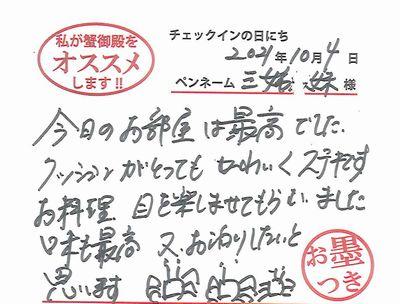 私が蟹御殿を
オススメ
します!!
チェックインの日にち
2021年10月4日
ペンネーム 三姉妹 様
今日のお部屋は最高でした
クッションがとってもかわいくステキです
お料理 目を楽しませてもらいました
味も最高 又、お泊りしたいと
思います
お墨
つき